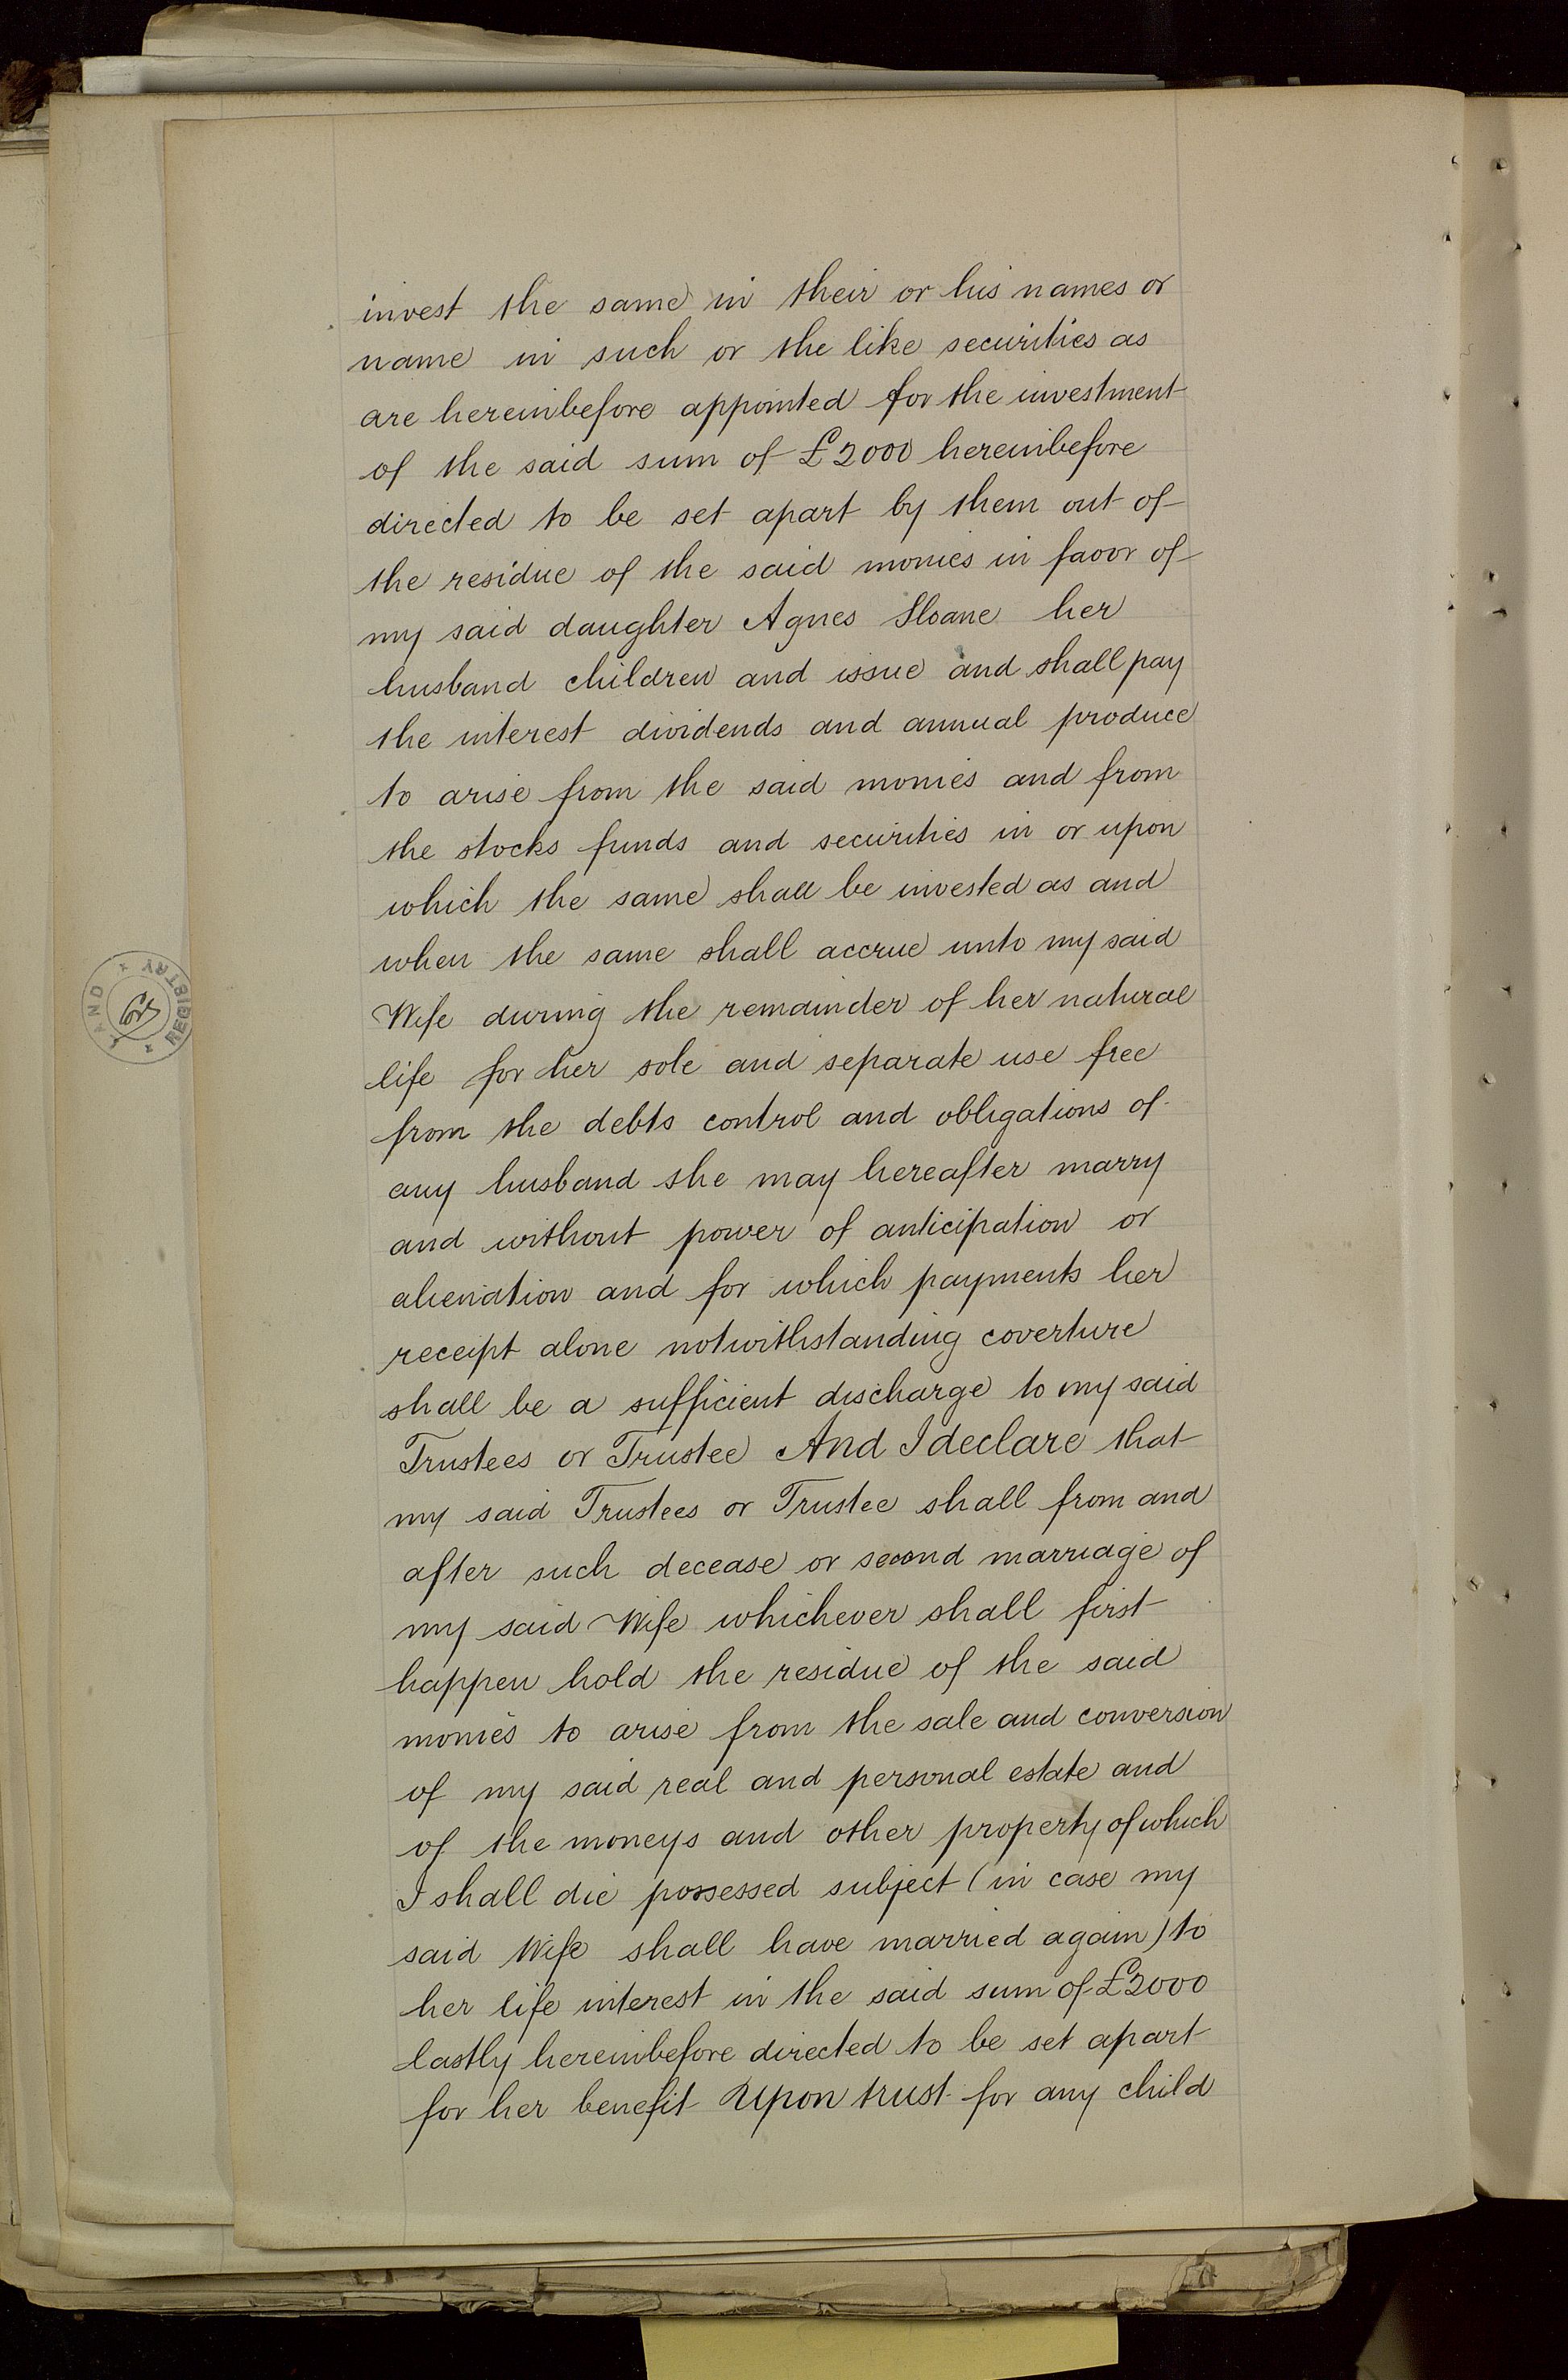 invest the same in their or his names or
name in such or the like securities as
are hereinbefore appointed for the investment
of the said sum of £2000 hereinbefore
directed to be set apart by them out of
the residue of the said monies in favor of
my said daughter Agnes Sloane her
husband children and issue and shall pay
the interest dividends and annual produce
to arise from the said monies and from
the stocks funds and securities in or upon
which the same shall be invested as and
when the same shall accrue unto my said
Wife during the remainder of her natural
life for her sole and separate use free
from the debts control and obligations of
any husband she may hereafter marry
and without power of anticipation or
alienation and for which payments her
receipt alone notwithstanding coverture
shall be a sufficient discharge to my said
Trustees or Trustee And I declare that
my said Trustees or Trustee shall from and
after such decease or second marriage of
my said Wife whichever shall first
happen hold the residue of the said
monies to arise from the sale and conversion
of my said real and personal estate and
of the moneys and other property of which
I shall die possessed subject (in case my
said Wife shall have married again) to
her life interest in the said sum of £2000
lastly hereinbefore directed to be set apart
for her benefit Upon trust for any child
LAND REGISTRY